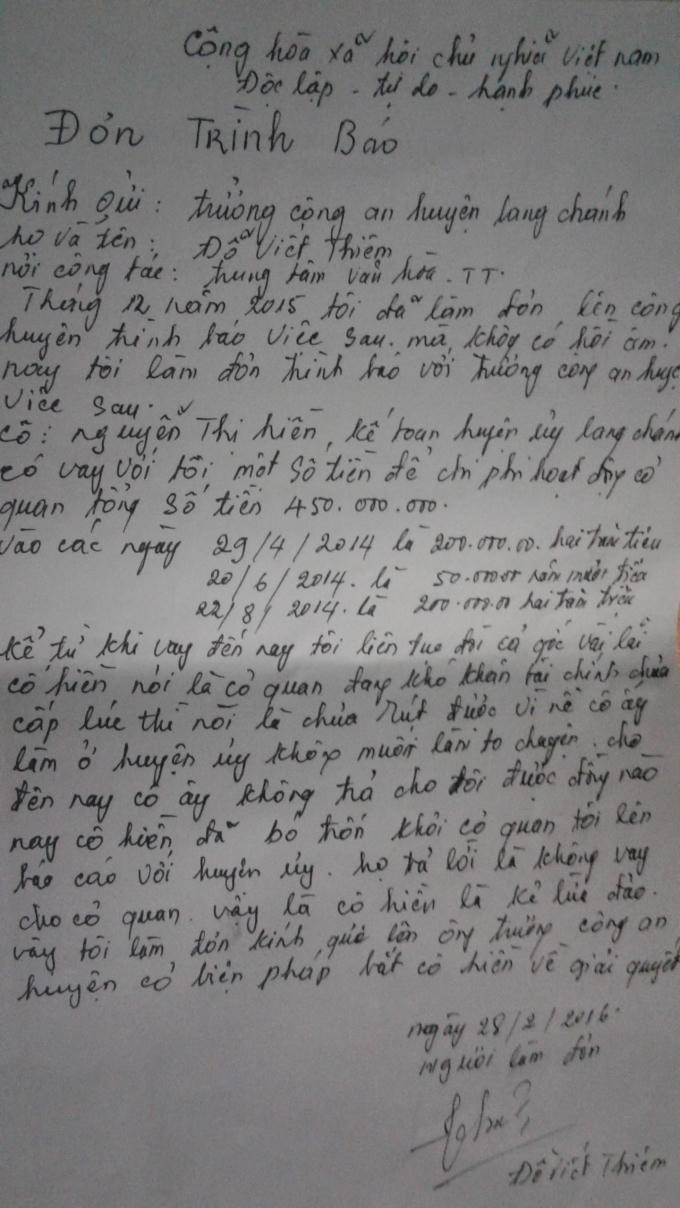 Cộng hòa xã hôi chủ nghiã việt nam
Độc lập - tự do - hạnh phúc.
Đơn Trình Báo
Kính gửi: trưởng công an huyện lang chánh
họ và tên: Đỗ Viết Thiêm
nơi công tác: trung tâm văn hóa. TT.
Tháng 12 năm 2015 tôi đã làm đơn lên công
huyện trình báo việc sau. mà không có hồi âm.
nay tôi làm đơn trình báo với trưởng công an huyệ
việc sau.
cô: nguyễn Thị hiền, kế toan huyện ủy lang chánh
có vay với tôi một số tiền để chi phi hoạt động cơ
quan tổng số tiền 450.000.000.
vào các ngày 29/4/2014 là 200.000.00. hai trăm triệu
20/6/2014. là 50.000.00 năm mươi triệu
22/8/2014. là 200.000.00 hai trăm triệu
kể từ khi vay đến nay tôi liên tuc đòi cả gốc lãi
cô hiền nói là cơ quan đang khó khăn tài chính chưa
cấp lúc thì nói là chưa rút được vì nể cô ấy
làm ở huyện ủy không muốn làm to chuyện. cho
đến nay cô ấy không trả cho tôi được đồng nào
nay cô hiền đã bỏ trốn khỏi cơ quan tôi lên
báo cáo với huyện ủy. họ trả lời là không vay
cho cơ quan. vậy là cô hiền là kẻ lừa đảo.
vậy tôi làm đơn kính lên ông trưởng công an
huyện có biện pháp bắt cô hiền về giải quyết
ngày 28/2/2016.
người làm đơn
Đỗ Viết Thiêm